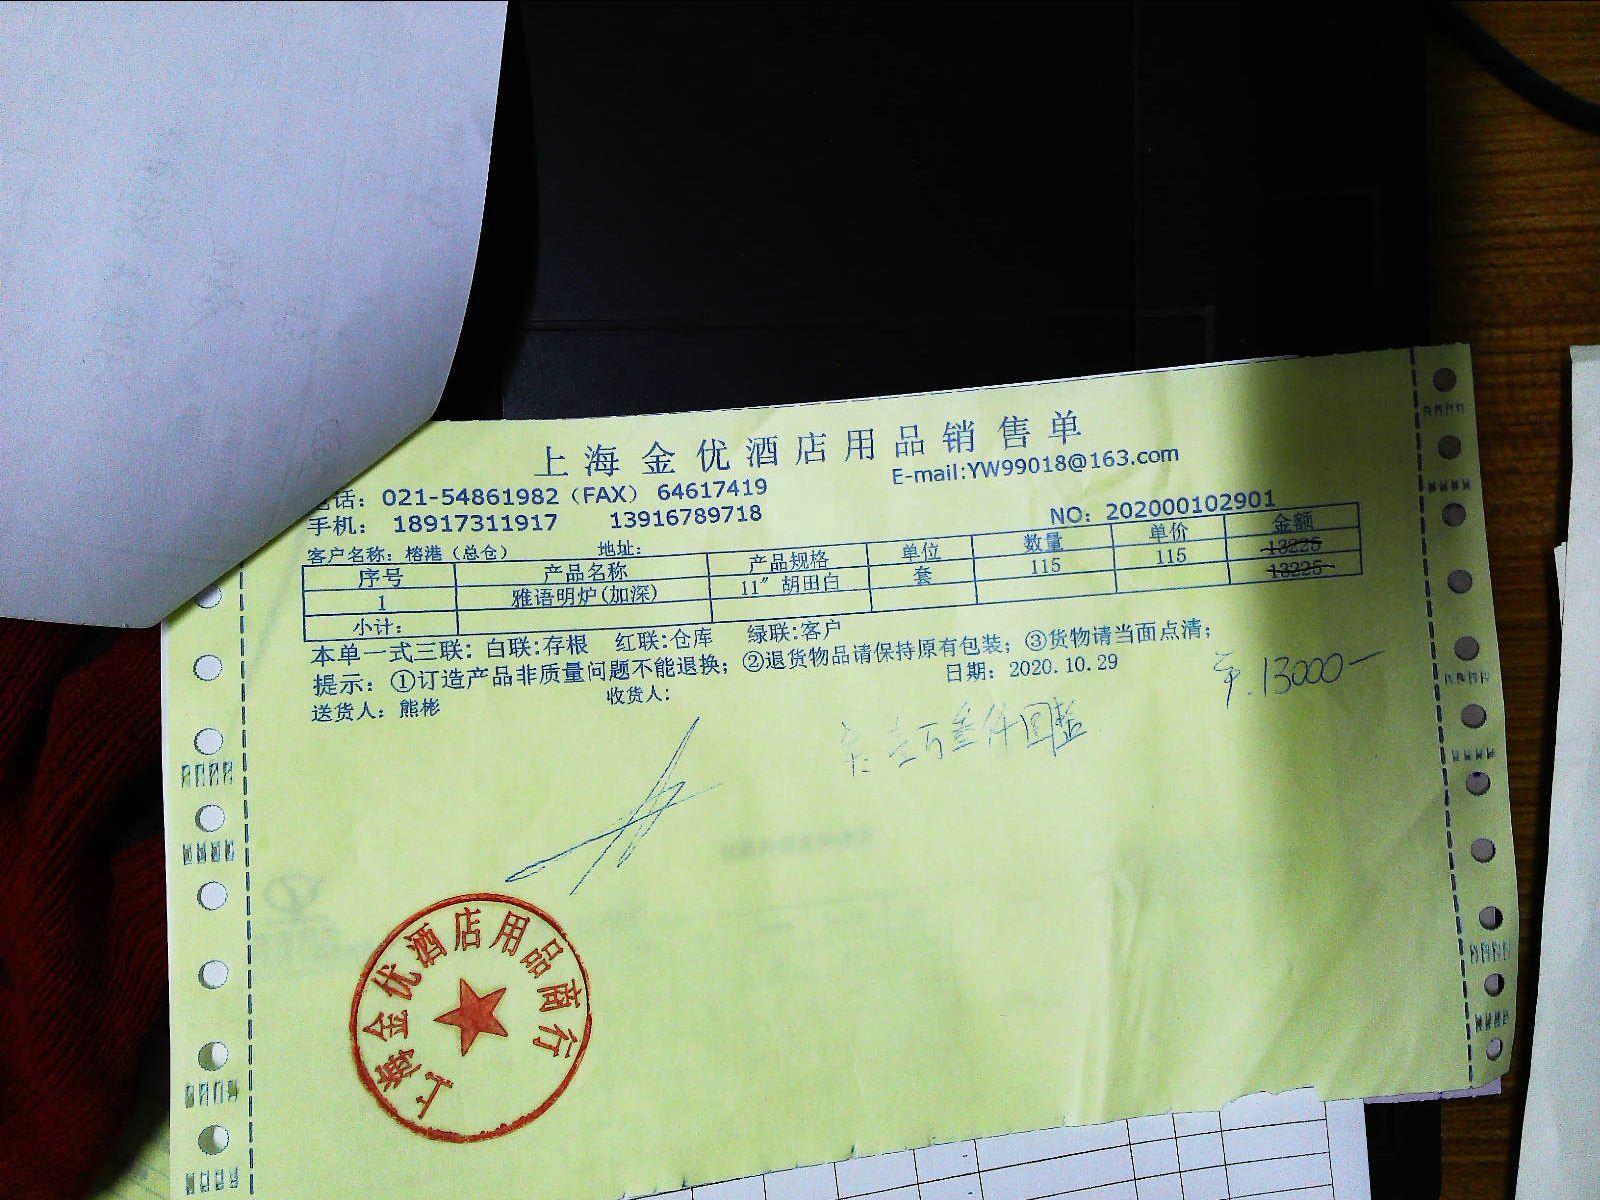 上海金优酒店用品销售单
电话：021-54861982（FAX） 64617419 E-mail:YW99018@163.com
手机： 18917311917 13916789718 NO：202000102901
客户名称：榕港（总仓） 地址：
序号 产品名称 产品规格 单位 数量 单价 金额
1 雅语明炉(加深) 11″胡田白 套 115 115 13225
小计： 13225
本单一式三联：白联:存根 红联:仓库 绿联:客户
提示：①订造产品非质量问题不能退换；②退货物品请保持原有包装；③货物请当面点清；
送货人：熊彬 收货人： 日期：2020.10.29
13000—
壹万叁仟圆整
上海金优酒店用品商行